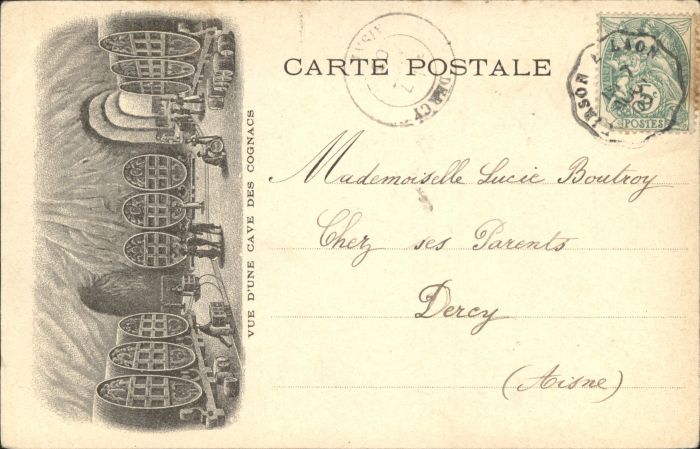 CARTE POSTALE
VUE D'UNE CAVE DES COGNACS
LAON
POSTES
DERCY
Mademoiselle Lucie Boutroy
Chez ses Parents
Dercy
(Aisne)